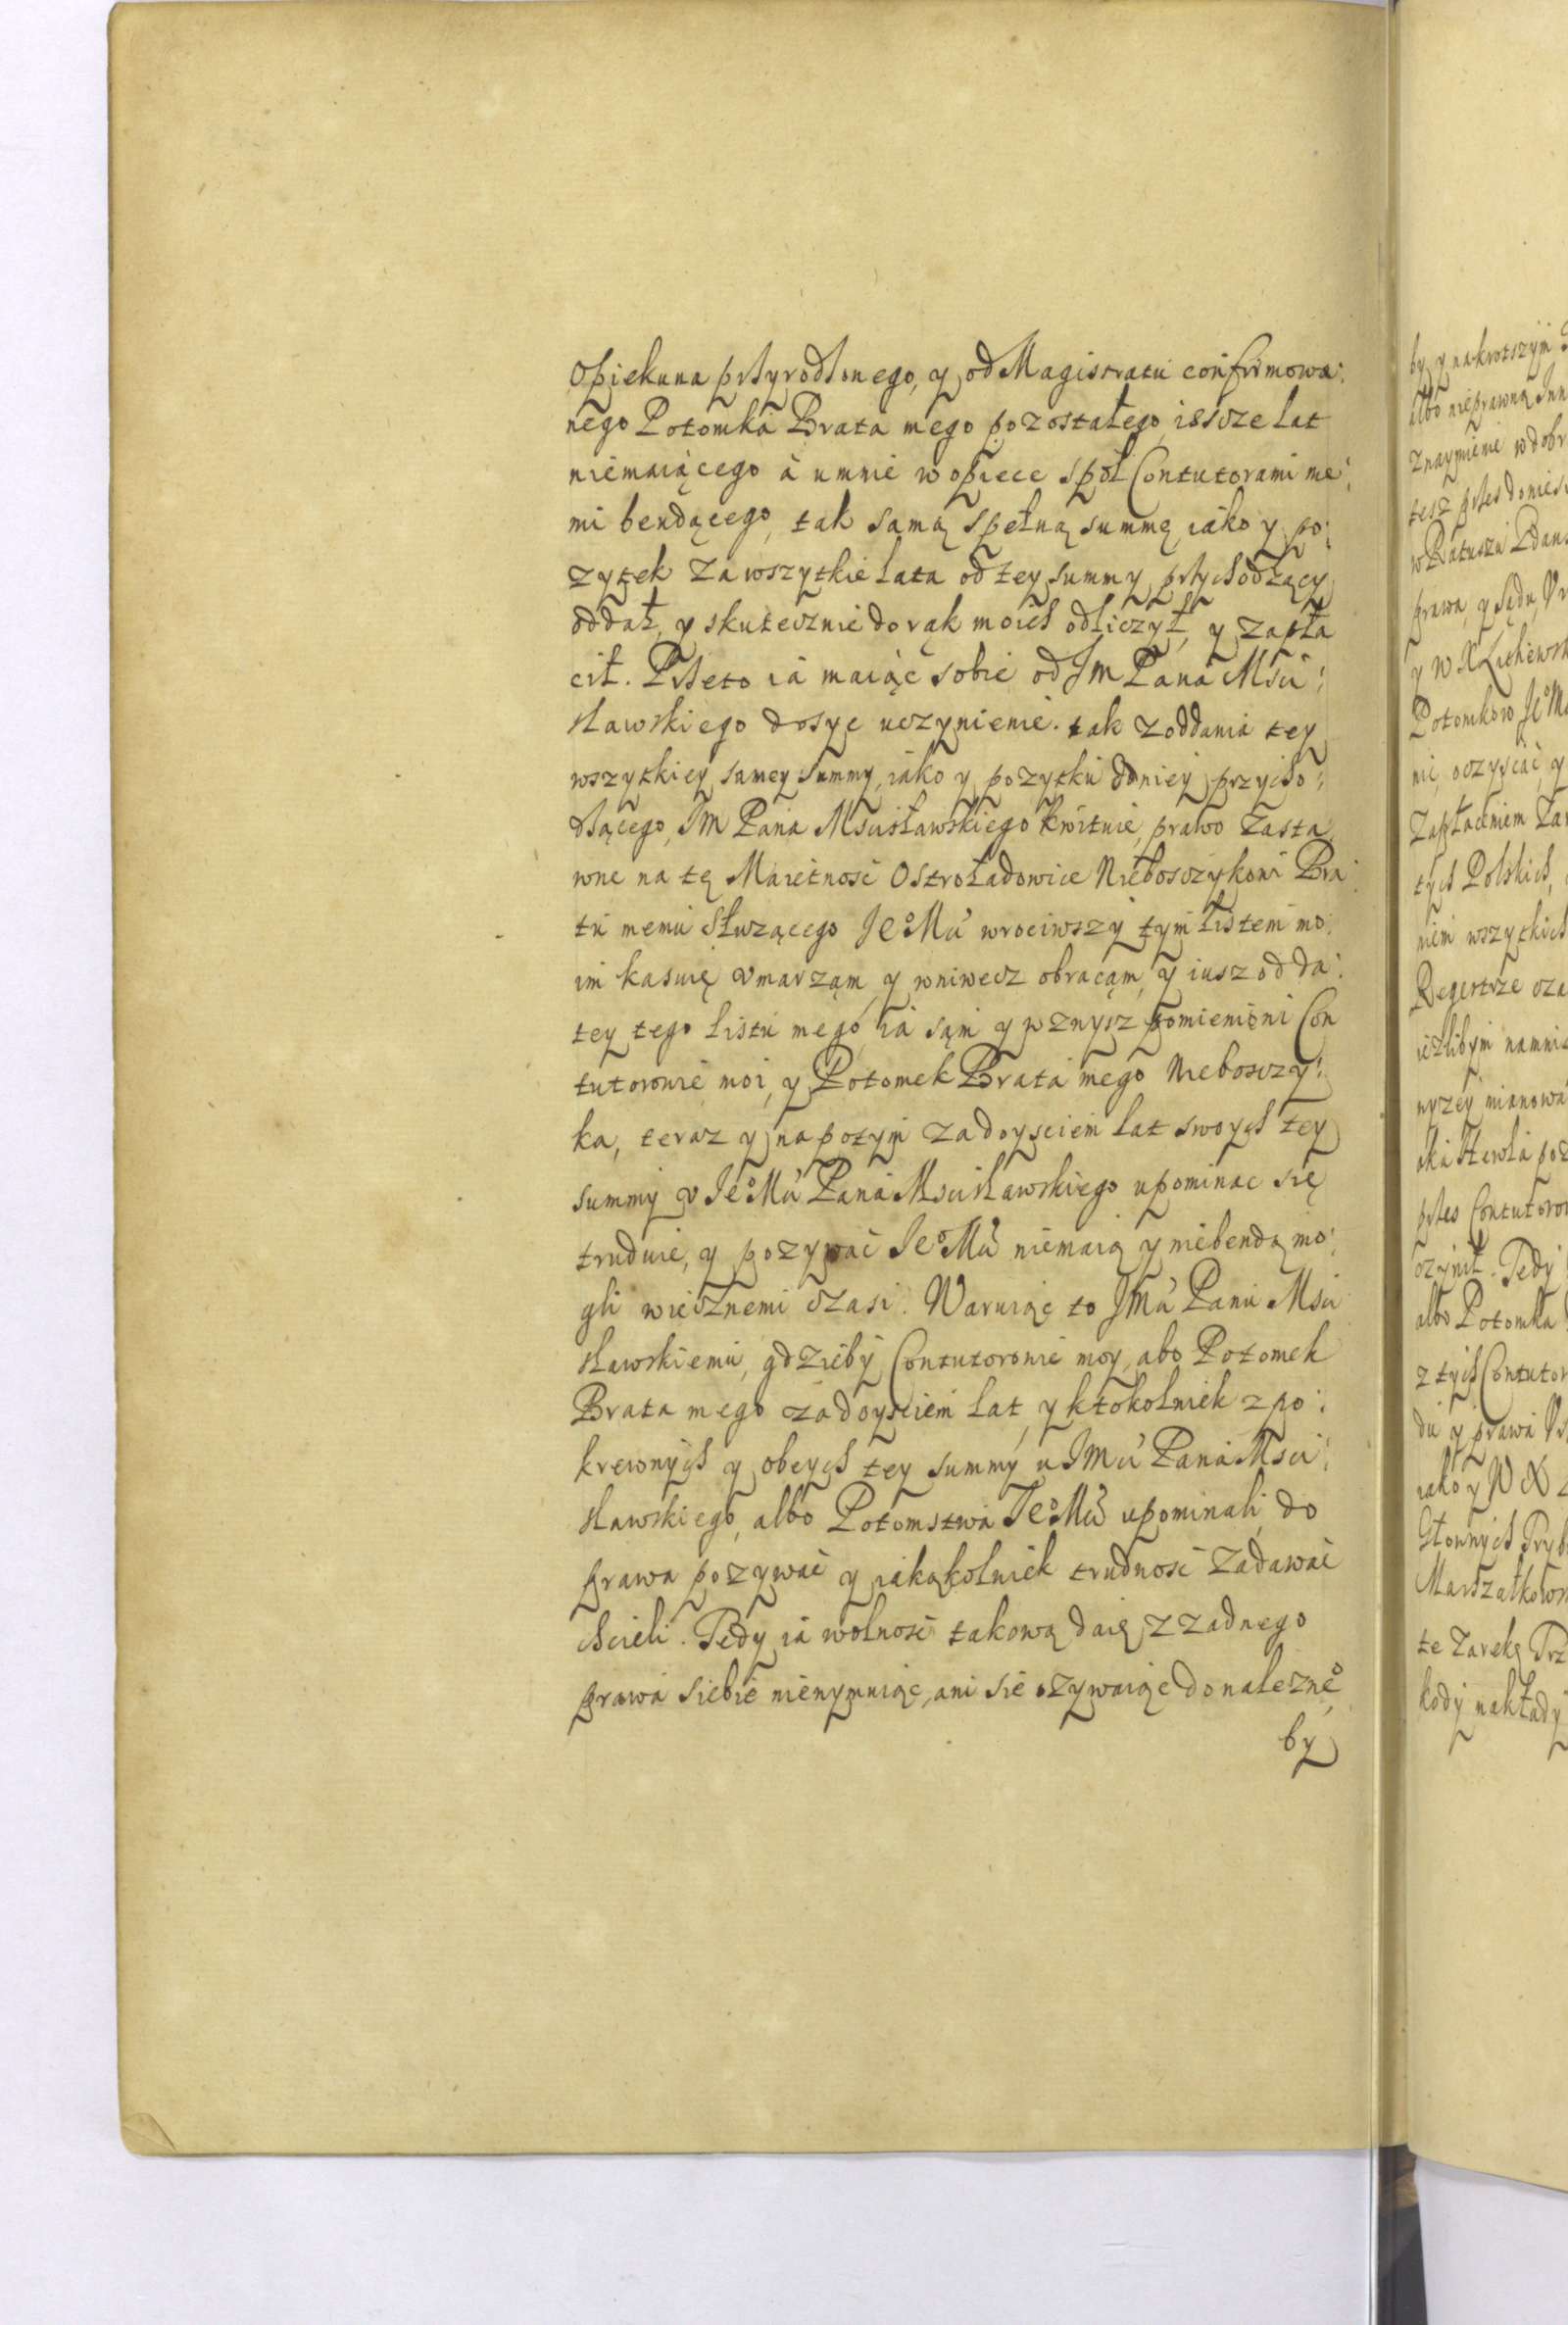 Opiekuna przyrodzonego, y od Magistratu confirmowa:
nego Potomka Brata mego pozostałego, iescze lat
niemaiącego á umnie w opiece społ Contutorami me:
mi bendącego, tak samą spełną summę iako y po:
zytek za wszytkie lata od tey summy przychodzący
oddał, y skutecznie do rąk moich odliczył, y zapła
cił. Przeto ia maiąc sobie od Jm Pana Msci:
sławskiego dosyc uczynienie. tak z oddania tey
wszytkiey samey summy, iako y pozytku odniey przycho:
dzącego, JM Pana Mscisławskiego kwituie, prawo zasta
wne na tę Maietnosc Ostroładowice Nieboszczykowi Bra
tu memu słuzącego Je°Mu wrociwszy tym listem mo:
im kasuię vmarzam, y wniwecz obracąm, y iusz od da:
tey tego listu mego, ia sąm y wznysz pomienieni Con
tutorowie moi, y Potomek Brata mego Nieboszczy:
ka, teraz y napotym zadoysciem lat swoych tey
summy v Je°Mu Pana Mscisławskiego upominac się
trudnic, y pozywać Je°Mu niemaią y niebendą mo:
gli wiecznemi czasi. Waruiąc to JMu Panu Msci
sławskiemu, gdzieby Contutorowie moy, abo Potomek
Brata mego zadoysciem lat, y ktokolniek z po:
krewnych y obcych tey summy u JMu Pana Msci:
sławskiego, albo Potomstwa Je°Mu upominali, do
prawa pozywać y iakąkolniek trudnosć zadawać
chcieli. Tedy ia wolnosć takową daię z zadnego
prawa siebie nienymuiąc, ani sie ozywaiąc do nalezne°
by
by y nakrotszym
albo nieprawną
znaymienie w dobr
tesz przes donies
w Ratuszu
prawa, y sędu,
y W X
Potomkow Je°M
nie, oczyscać, y
zapłaceniem
tych Polskich,
niem wszytkich
Regestrze
iezlibym namnie
nyzey mianowa
przes Contutoro
czynił. Tedy
albo Potomka
z tych Contutor
du y prawa
iako y W X
Głownych Tryb
Marszałkow
te zarekę
kody nakłady